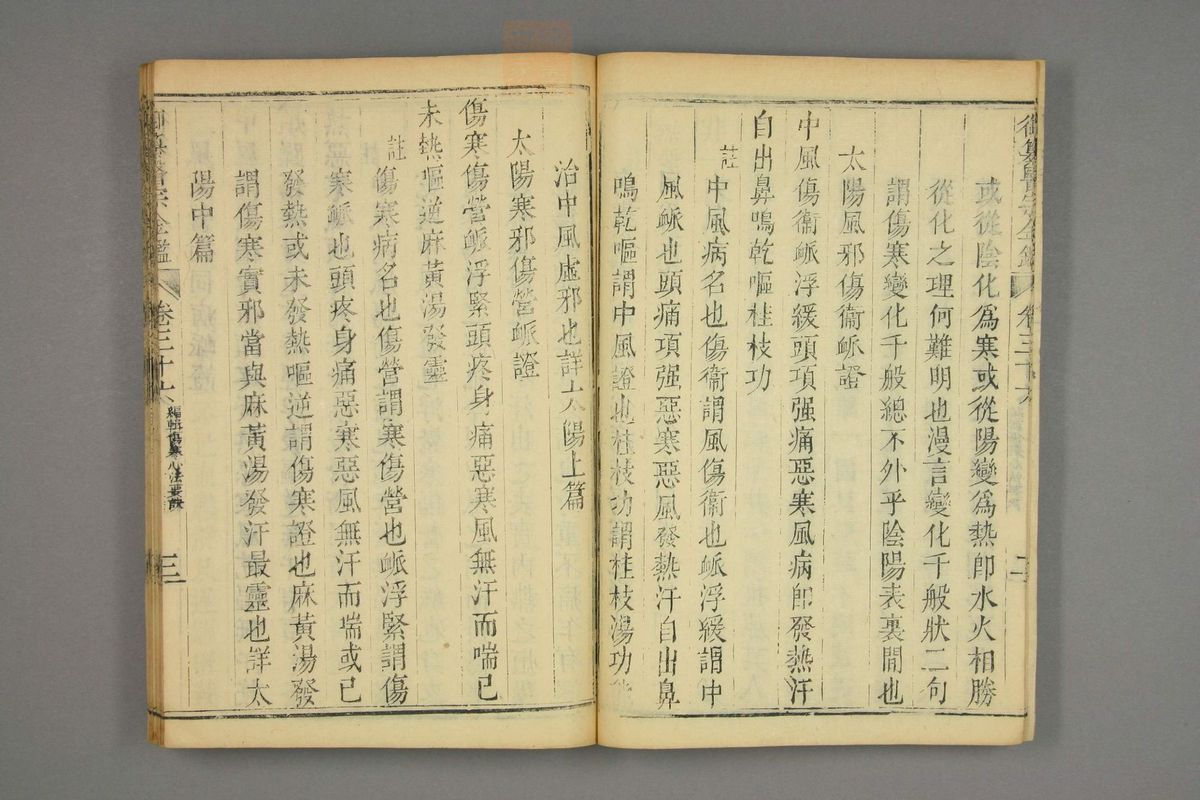 御纂醫宗金鑑 卷三十六 二
或從陰化爲寒或從陽變爲熱卽水火相勝
從化之理何難明也漫言變化千般狀二句
謂傷寒變化千般總不外乎陰陽表裏間也
太陽風邪傷衞脈證
中風傷衞脈浮緩頭項强痛惡寒風病卽發熱汗
自出鼻鳴乾嘔桂枝功
註
中風病名也傷衞謂風傷衞也脈浮緩謂中
風脈也頭痛項强惡寒惡風發熱汗自出鼻
鳴乾嘔謂中風證也桂枝功謂桂枝湯功
治中風虛邪也詳太陽上篇
太陽寒邪傷營脈證
傷寒傷營脈浮緊頭疼身痛惡寒風無汗而喘已
未熱嘔逆麻黃湯發靈
註
傷寒病名也傷營謂寒傷營也脈浮緊謂傷
寒脈也頭疼身痛惡寒惡風無汗而喘或已
發熱或未發熱嘔逆謂傷寒證也麻黃湯發
謂傷寒實邪當與麻黃湯發汗最靈也詳太
陽中篇
御纂醫宗金鑑 卷三十六 編輯傷寒心法要訣 三